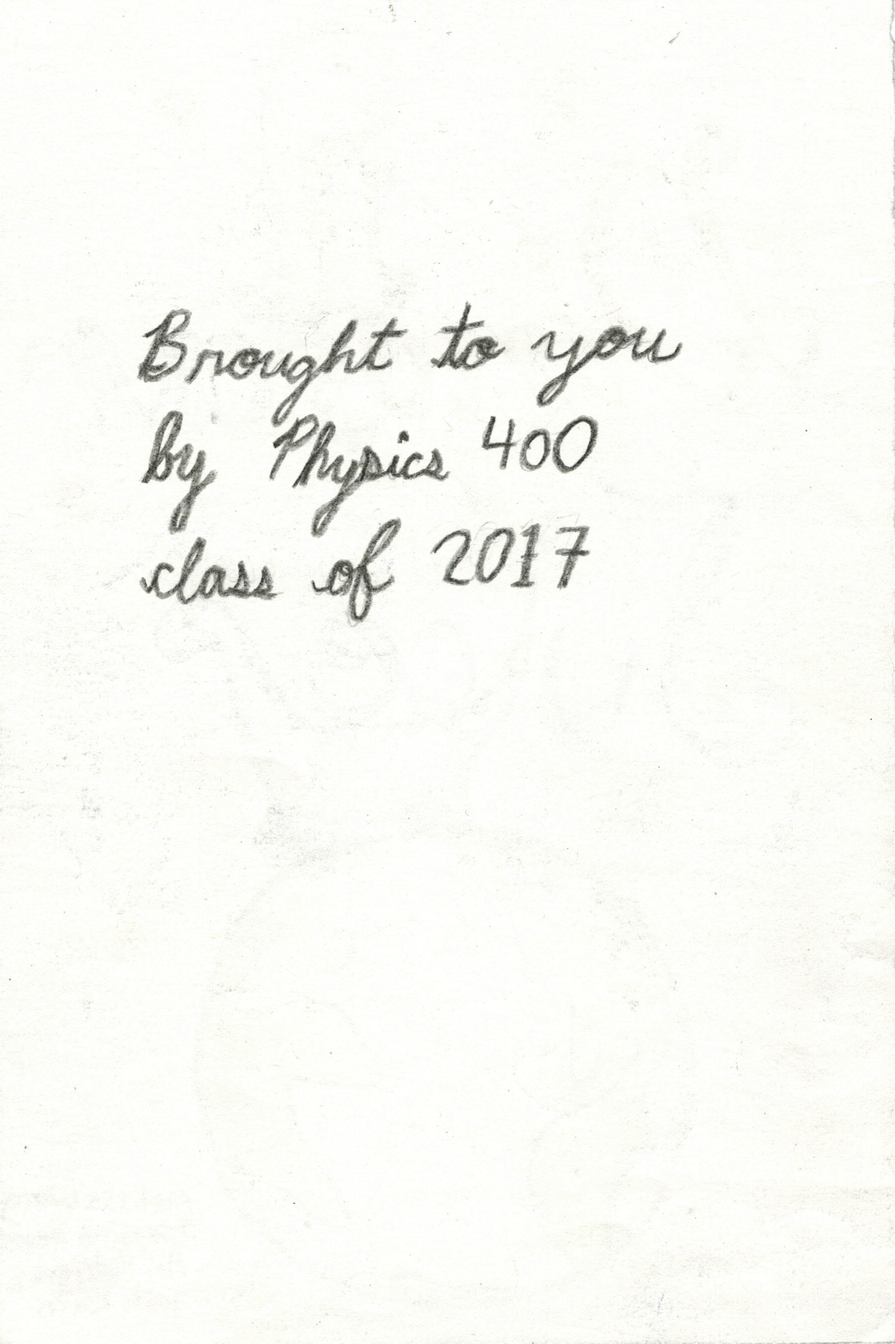 Brought to you
by Physics 400
class of 2017